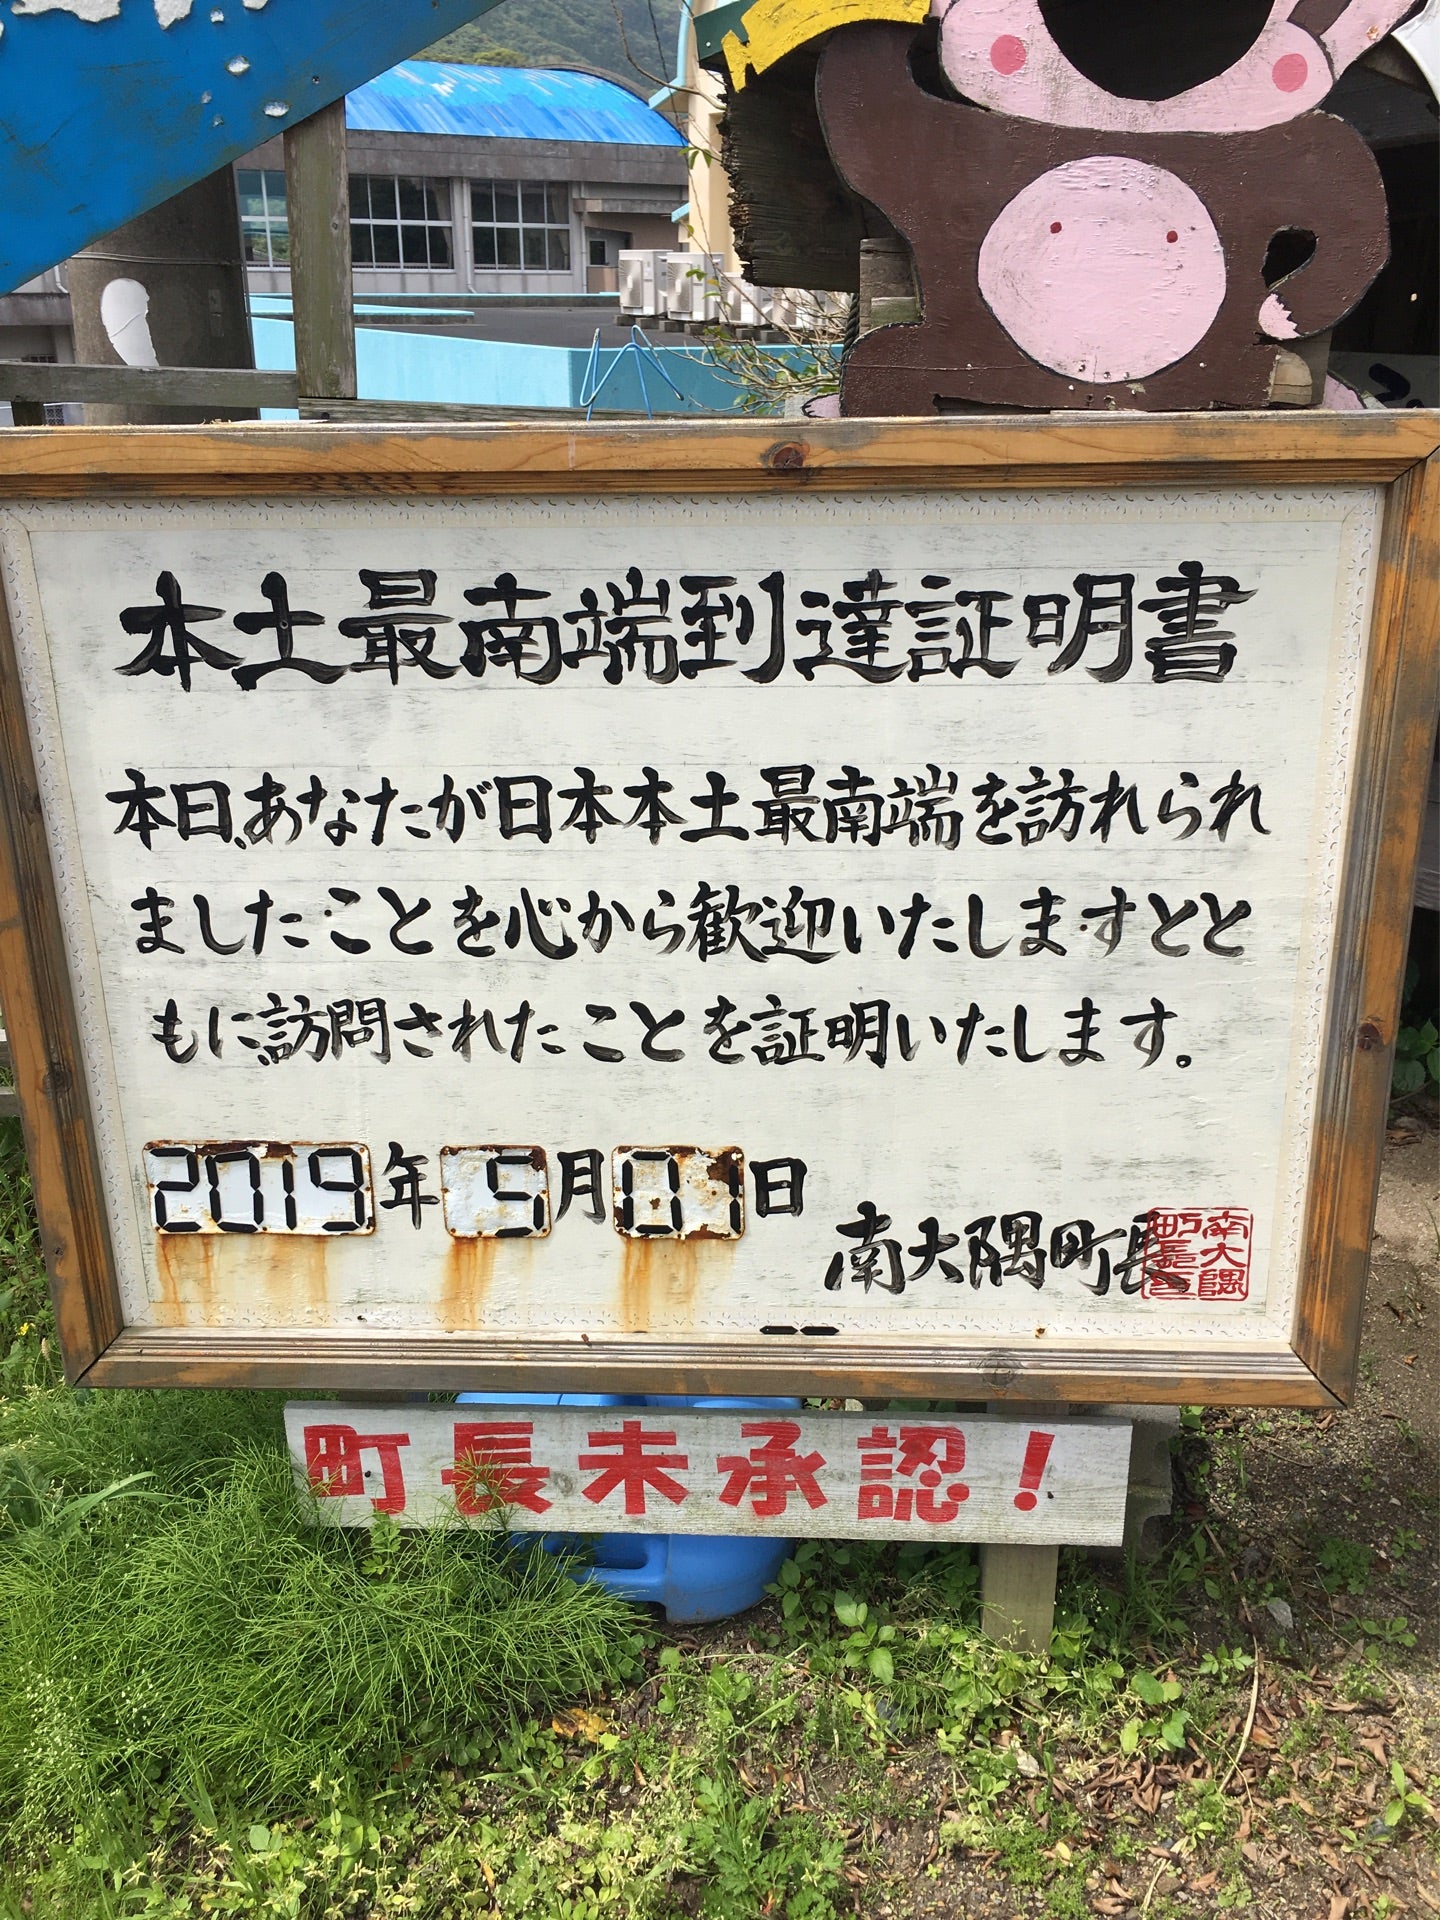 本土最南端到達証明書
本日、あなたが日本本土最南端を訪れられ
ましたことを心から歓迎いたしますとと
もに、訪問されたことを証明いたします。
2019年 5月01日
南大隅町長
南大隅
町長之印
町長未承認！